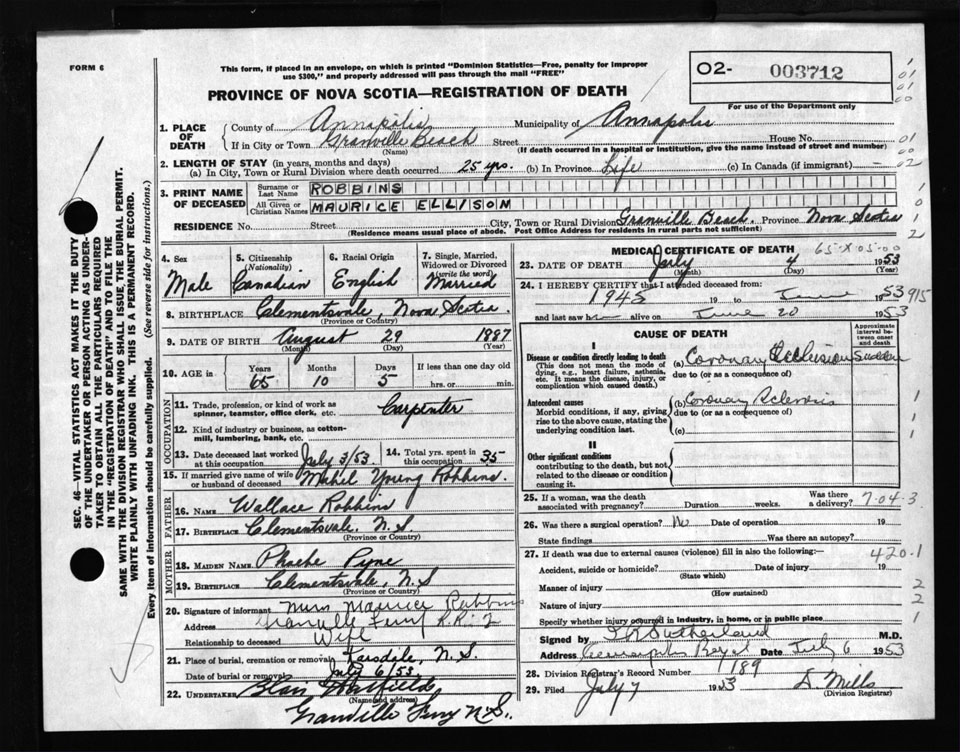 FORM 6
This form, if placed in an envelope, on which is printed "Dominion Statistics—Free, penalty for improper
use $300," and properly addressed will pass through the mail "FREE"
02- 003712
For use of the Department only
PROVINCE OF NOVA SCOTIA—REGISTRATION OF DEATH
1. PLACE OF DEATH
County of Annapolis Municipality of Annapolis
If in City or Town Granville Beach Street House No.
(Name) (If death occurred in a hospital or institution, give the name instead of street and number)
2. LENGTH OF STAY (in years, months and days)
(a) In City, Town or Rural Division where death occurred 25 yrs. (b) In Province Life (c) In Canada (if immigrant) —
3. PRINT NAME OF DECEASED
Surname or Last Name ROBBINS
All Given or Christian Names MAURICE ELLISON
RESIDENCE No. Street City, Town or Rural Division Granville Beach. Province Nova Scotia
(Residence means usual place of abode. Post Office Address for residents in rural parts not sufficient)
SEC. 46—VITAL STATISTICS ACT MAKES IT THE DUTY
OF THE UNDERTAKER OR PERSON ACTING AS UNDER-
TAKER TO OBTAIN ALL THE PARTICULARS REQUIRED
IN THE "REGISTRATION OF DEATH" AND TO FILE THE
SAME WITH THE DIVISION REGISTRAR WHO SHALL ISSUE THE BURIAL PERMIT.
WRITE PLAINLY WITH UNFADING INK. THIS IS A PERMANENT RECORD.
Every item of information should be carefully supplied. (See reverse side for instructions.)
4. Sex
Male
5. Citizenship (Nationality)
Canadian
6. Racial Origin
English
7. Single, Married, Widowed or Divorced (write the word)
Married
8. BIRTHPLACE Clementsvale, Nova Scotia.
(Province or Country)
9. DATE OF BIRTH August 29 1887
(Month) (Day) (Year)
10. AGE in
Years Months Days If less than one day old
65 10 5 hrs. or min.
OCCUPATION
11. Trade, profession or kind of work as
spinner, teamster, office clerk, etc. Carpenter
12. Kind of industry or business, as cotton-
mill, lumbering, bank, etc.
13. Date deceased last worked at this occupation July 3/53.
14. Total yrs. spent in this occupation 35
15. If married give name of wife or husband of deceased Mabel Young Robbins.
FATHER
16. NAME Wallace Robbins
17. BIRTHPLACE Clementsvale, N.S.
(Province or Country)
MOTHER
18. MAIDEN NAME Phoebe Pyne
19. BIRTHPLACE Clementsvale, N.S
(Province or Country)
20. Signature of informant Mrs Maurice Robbins
Address Granville Ferry R.R. 2
Relationship to deceased Wife
21. Place of burial, cremation or removal Karsdale, N.S.
Date of burial or removal July 6/53
22. UNDERTAKER Blair
(Name and address)
Granville Ferry N.S.
MEDICAL CERTIFICATE OF DEATH
65-X 05-00
23. DATE OF DEATH July 4 1953
(Month) (Day) (Year)
24. I HEREBY CERTIFY that I attended deceased from:
1948 19 to June 1953
915
and last saw h alive on June 20 1953
CAUSE OF DEATH
Approximate interval between onset and death
I
Disease or condition directly leading to death
(This does not mean the mode of
dying, e.g., heart failure, asthenia,
etc. It means the disease, injury, or
complication which caused death.)
(a) Coronary Occlusion Sudden
due to (or as a consequence of)
Antecedent causes
Morbid conditions, if any, giving
rise to the above cause, stating the
underlying condition last.
(b) Coronary Sclerosis
due to (or as a consequence of)
(c)
II
Other significant conditions
contributing to the death, but not
related to the disease or condition
causing it.
25. If a woman, was the death associated with pregnancy? Duration weeks. Was there a delivery?
7-04-3
26. Was there a surgical operation? No Date of operation 19
State findings Was there an autopsy?
27. If death was due to external causes (violence) fill in also the following:
420.1
Accident, suicide or homicide? Date of injury 19
(State which)
Manner of injury
(How sustained)
Nature of injury
Specify whether injury occurred in industry, in home, or in public place
Signed by Sutherland M.D.
Address Annapolis Royal Date July 6 1953
28. Division Registrar's Record Number 189
29. Filed July 7 1953 D. Mills
(Division Registrar)